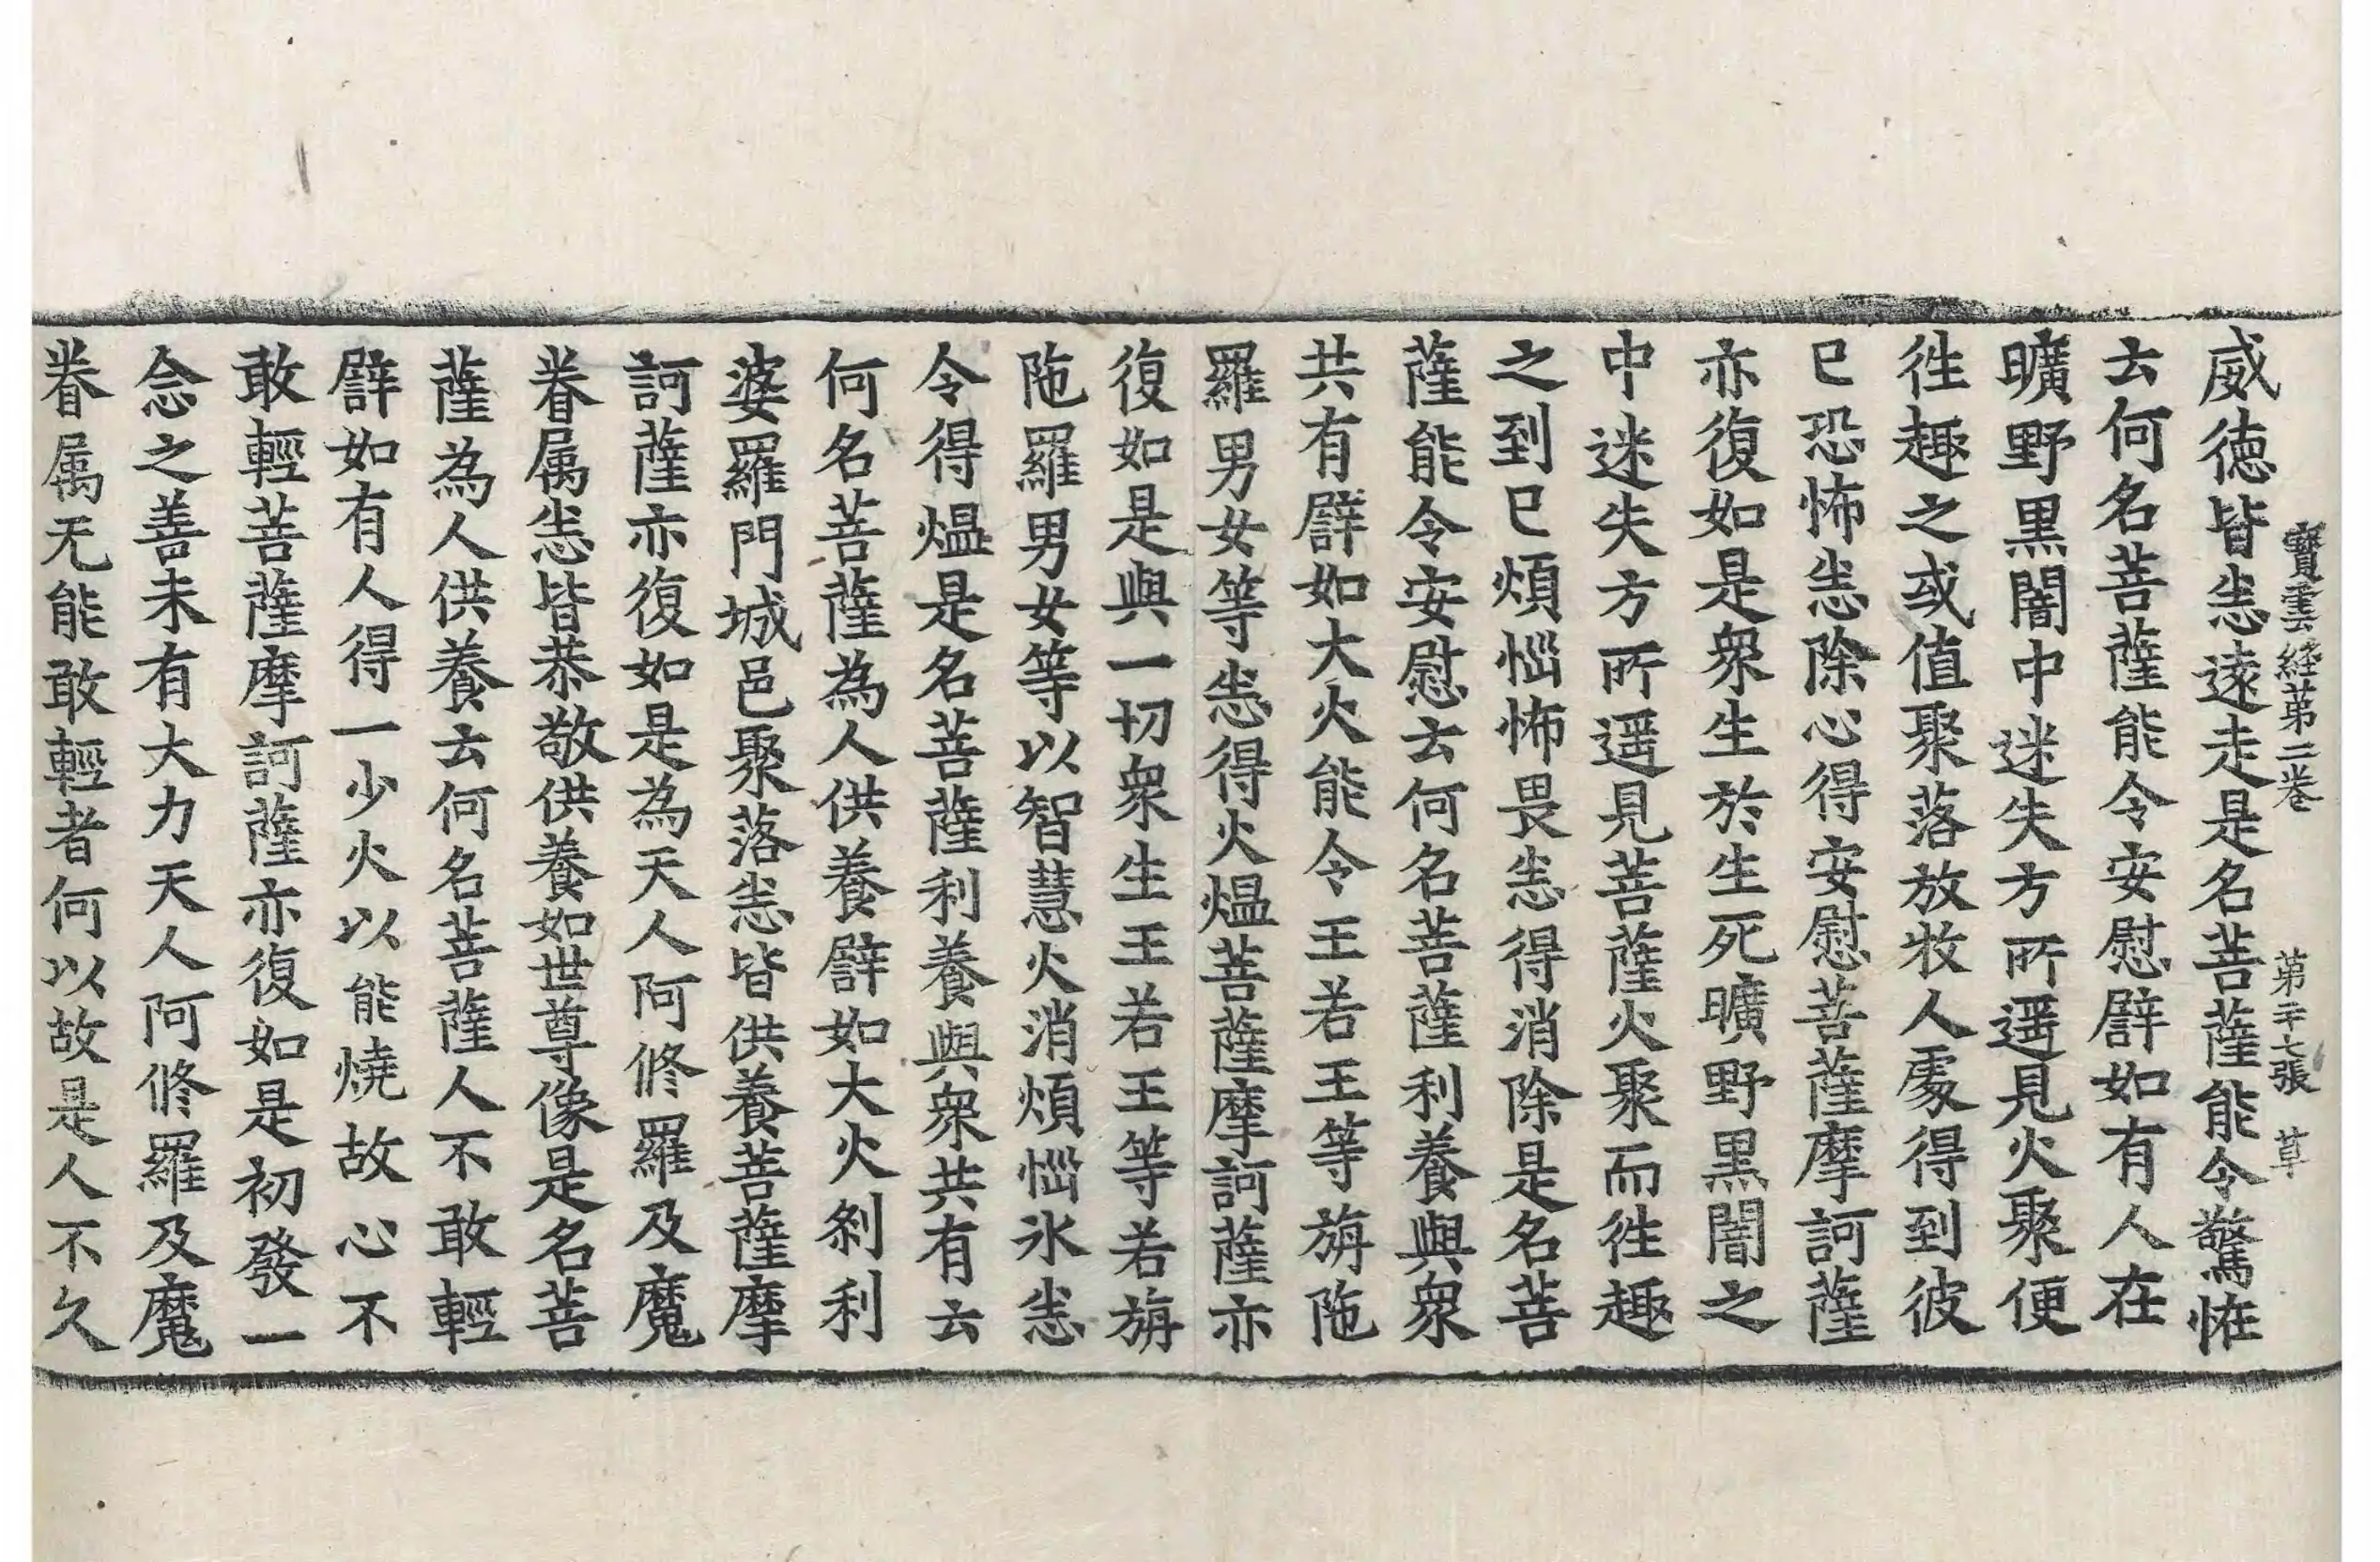 寶雲経苐二巻 苐二十七張 草
威徳皆恙逺走是名菩薩能令驚恠
去何名菩薩能令安慰譬如有人在
曠野黒闇中迷失方所遥見火聚便
徃趣之或值聚落放牧人處得到彼
已恐怖恙除心得安慰菩薩摩訶薩
亦復如是衆生於生死曠野黒闇之
中迷失方所遥見菩薩火聚而徃趣
之到已煩惱怖畏恙得消除是名菩
薩能令安慰去何名菩薩利養與衆
共有譬如大火能令王若王等旃陁
羅男女等恙得火煴菩薩摩訶薩亦
復如是與一切衆生王若王等若旃
陁羅男女等以智慧火消煩惱氷恙
令得煴是名菩薩利養與衆共有去
何名菩薩為人供養譬如大火刹利
婆羅門城邑聚落恙皆供養菩薩摩
訶薩亦復如是為天人阿修羅及魔
眷属恙皆恭敬供養如世尊像是名菩
薩為人供養去何名菩薩人不敢輕
譬如有人得一少火以能燒故心不
敢輕菩薩摩訶薩亦復如是初發一
念之善未有大力天人阿修羅及魔
眷属无能敢輕者何以故是人不久